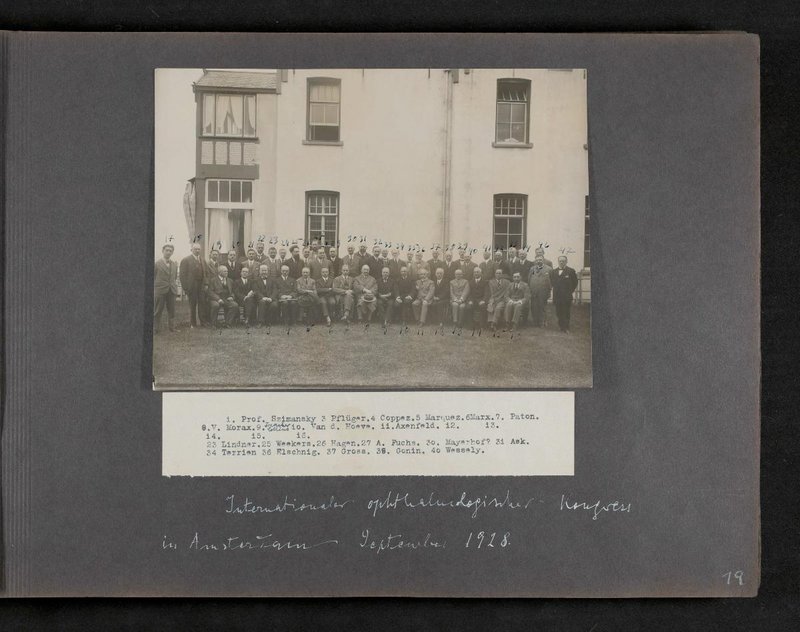 14 15
22 23 30 31 32 33 34 35 36 37 38 39 40 41 42
1. Prof. Szimansky 3 Pflüger.4 Coppez.5 Marquez.6Marx.7. Paton.
8.V. Morax.9. 10. Van d. Hoeve. 11.Axenfeld. 12. 13.
14. 15. 16.
23 Lindner.25 Weekers.26 Hagen.27 A. Fuchs. 30. Mayerhof? 31 Ask.
34 Terrien 36 Elschnig. 37 Gross. 38. Gonin. 40 Wessely.
Internationaler ophthalmologischer Kongress
in Amsterdam September 1928.
79